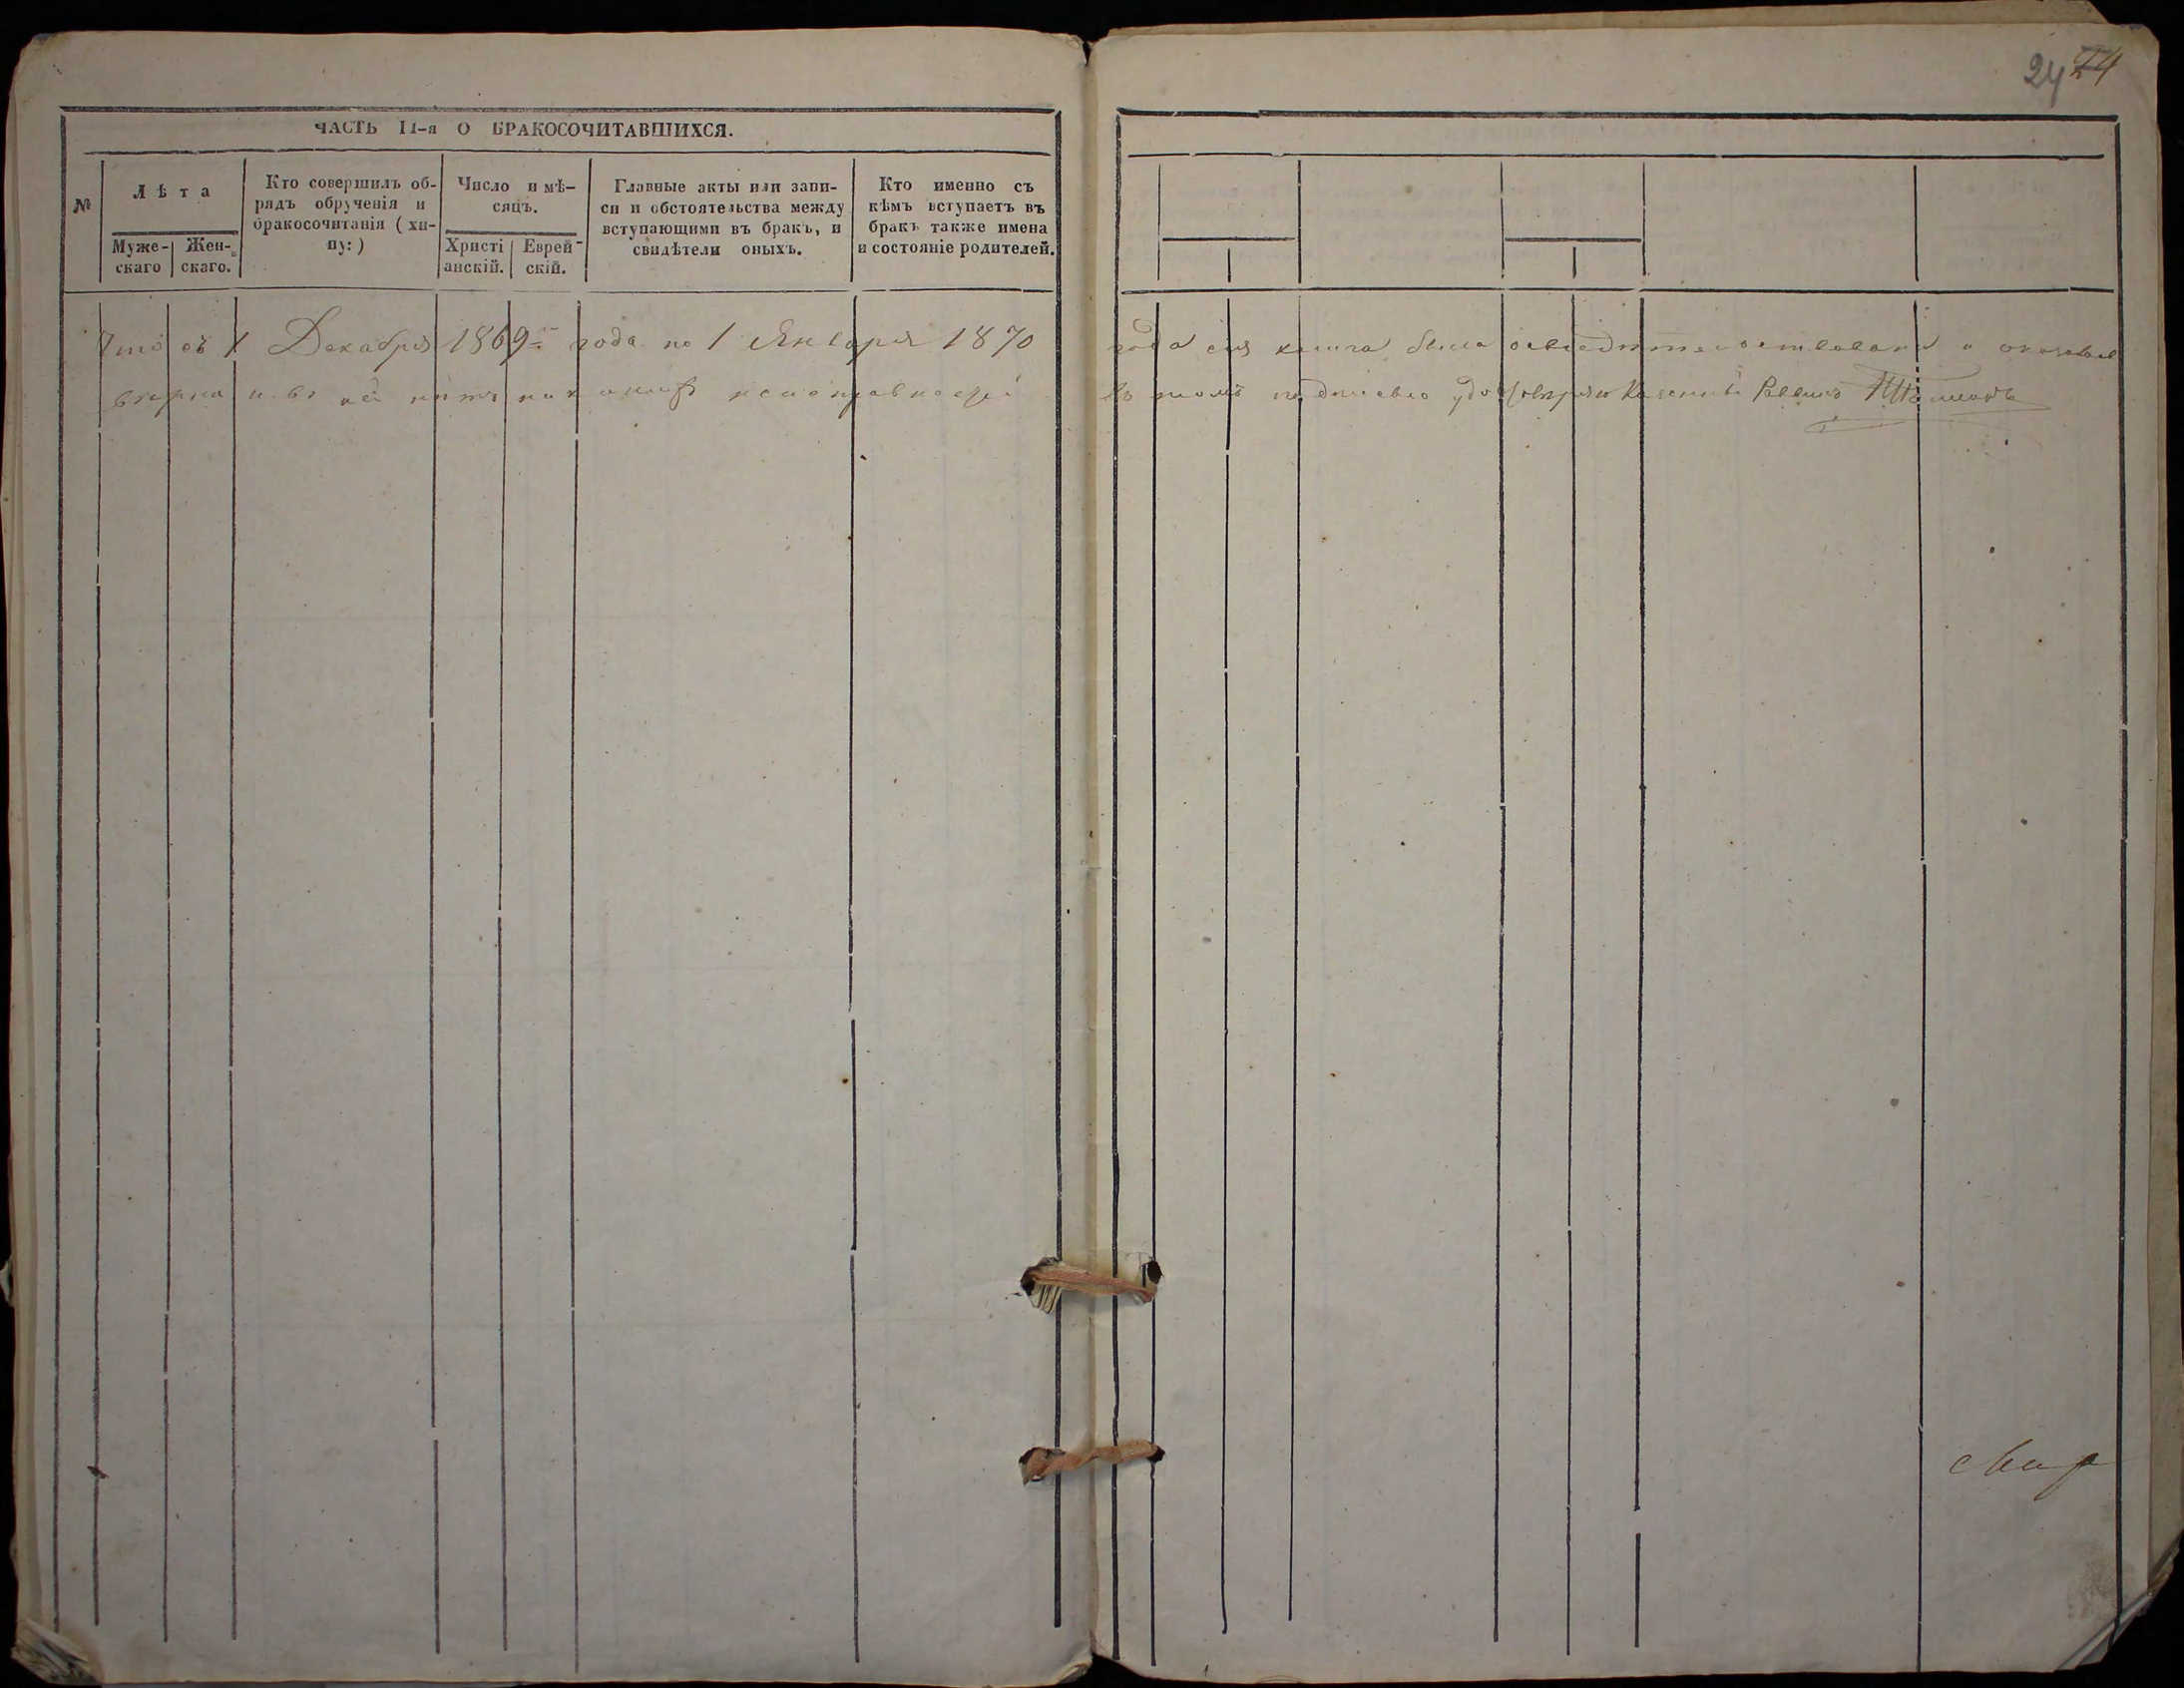 24 24
ЧАСТЬ II-я О БРАКОСОЧИТАВШИХСЯ.
№
Лѣта
Муже-
скаго
Жен-
скаго.
Кто совершилъ об-
рядъ обрученія и
бракосочитанія (хи-
пу:)
Число и мѣ-
сяцъ.
Христі
анскій.
Еврей-
скій.
Главные акты или запи-
си и обстоятельства между
вступающими въ бракъ, и
свидѣтели оныхъ.
Кто именно съ
кѣмъ вступаетъ въ
бракъ также имена
и состояніе родителей.
Что съ 1 Декабря 1869 года по 1 Января 1870 года сія книга была освидѣтельствована и оказалась
вѣрна и въ ней нѣтъ никакихъ неисправностей въ томъ подписью удостовѣряю Казенный Раввинъ